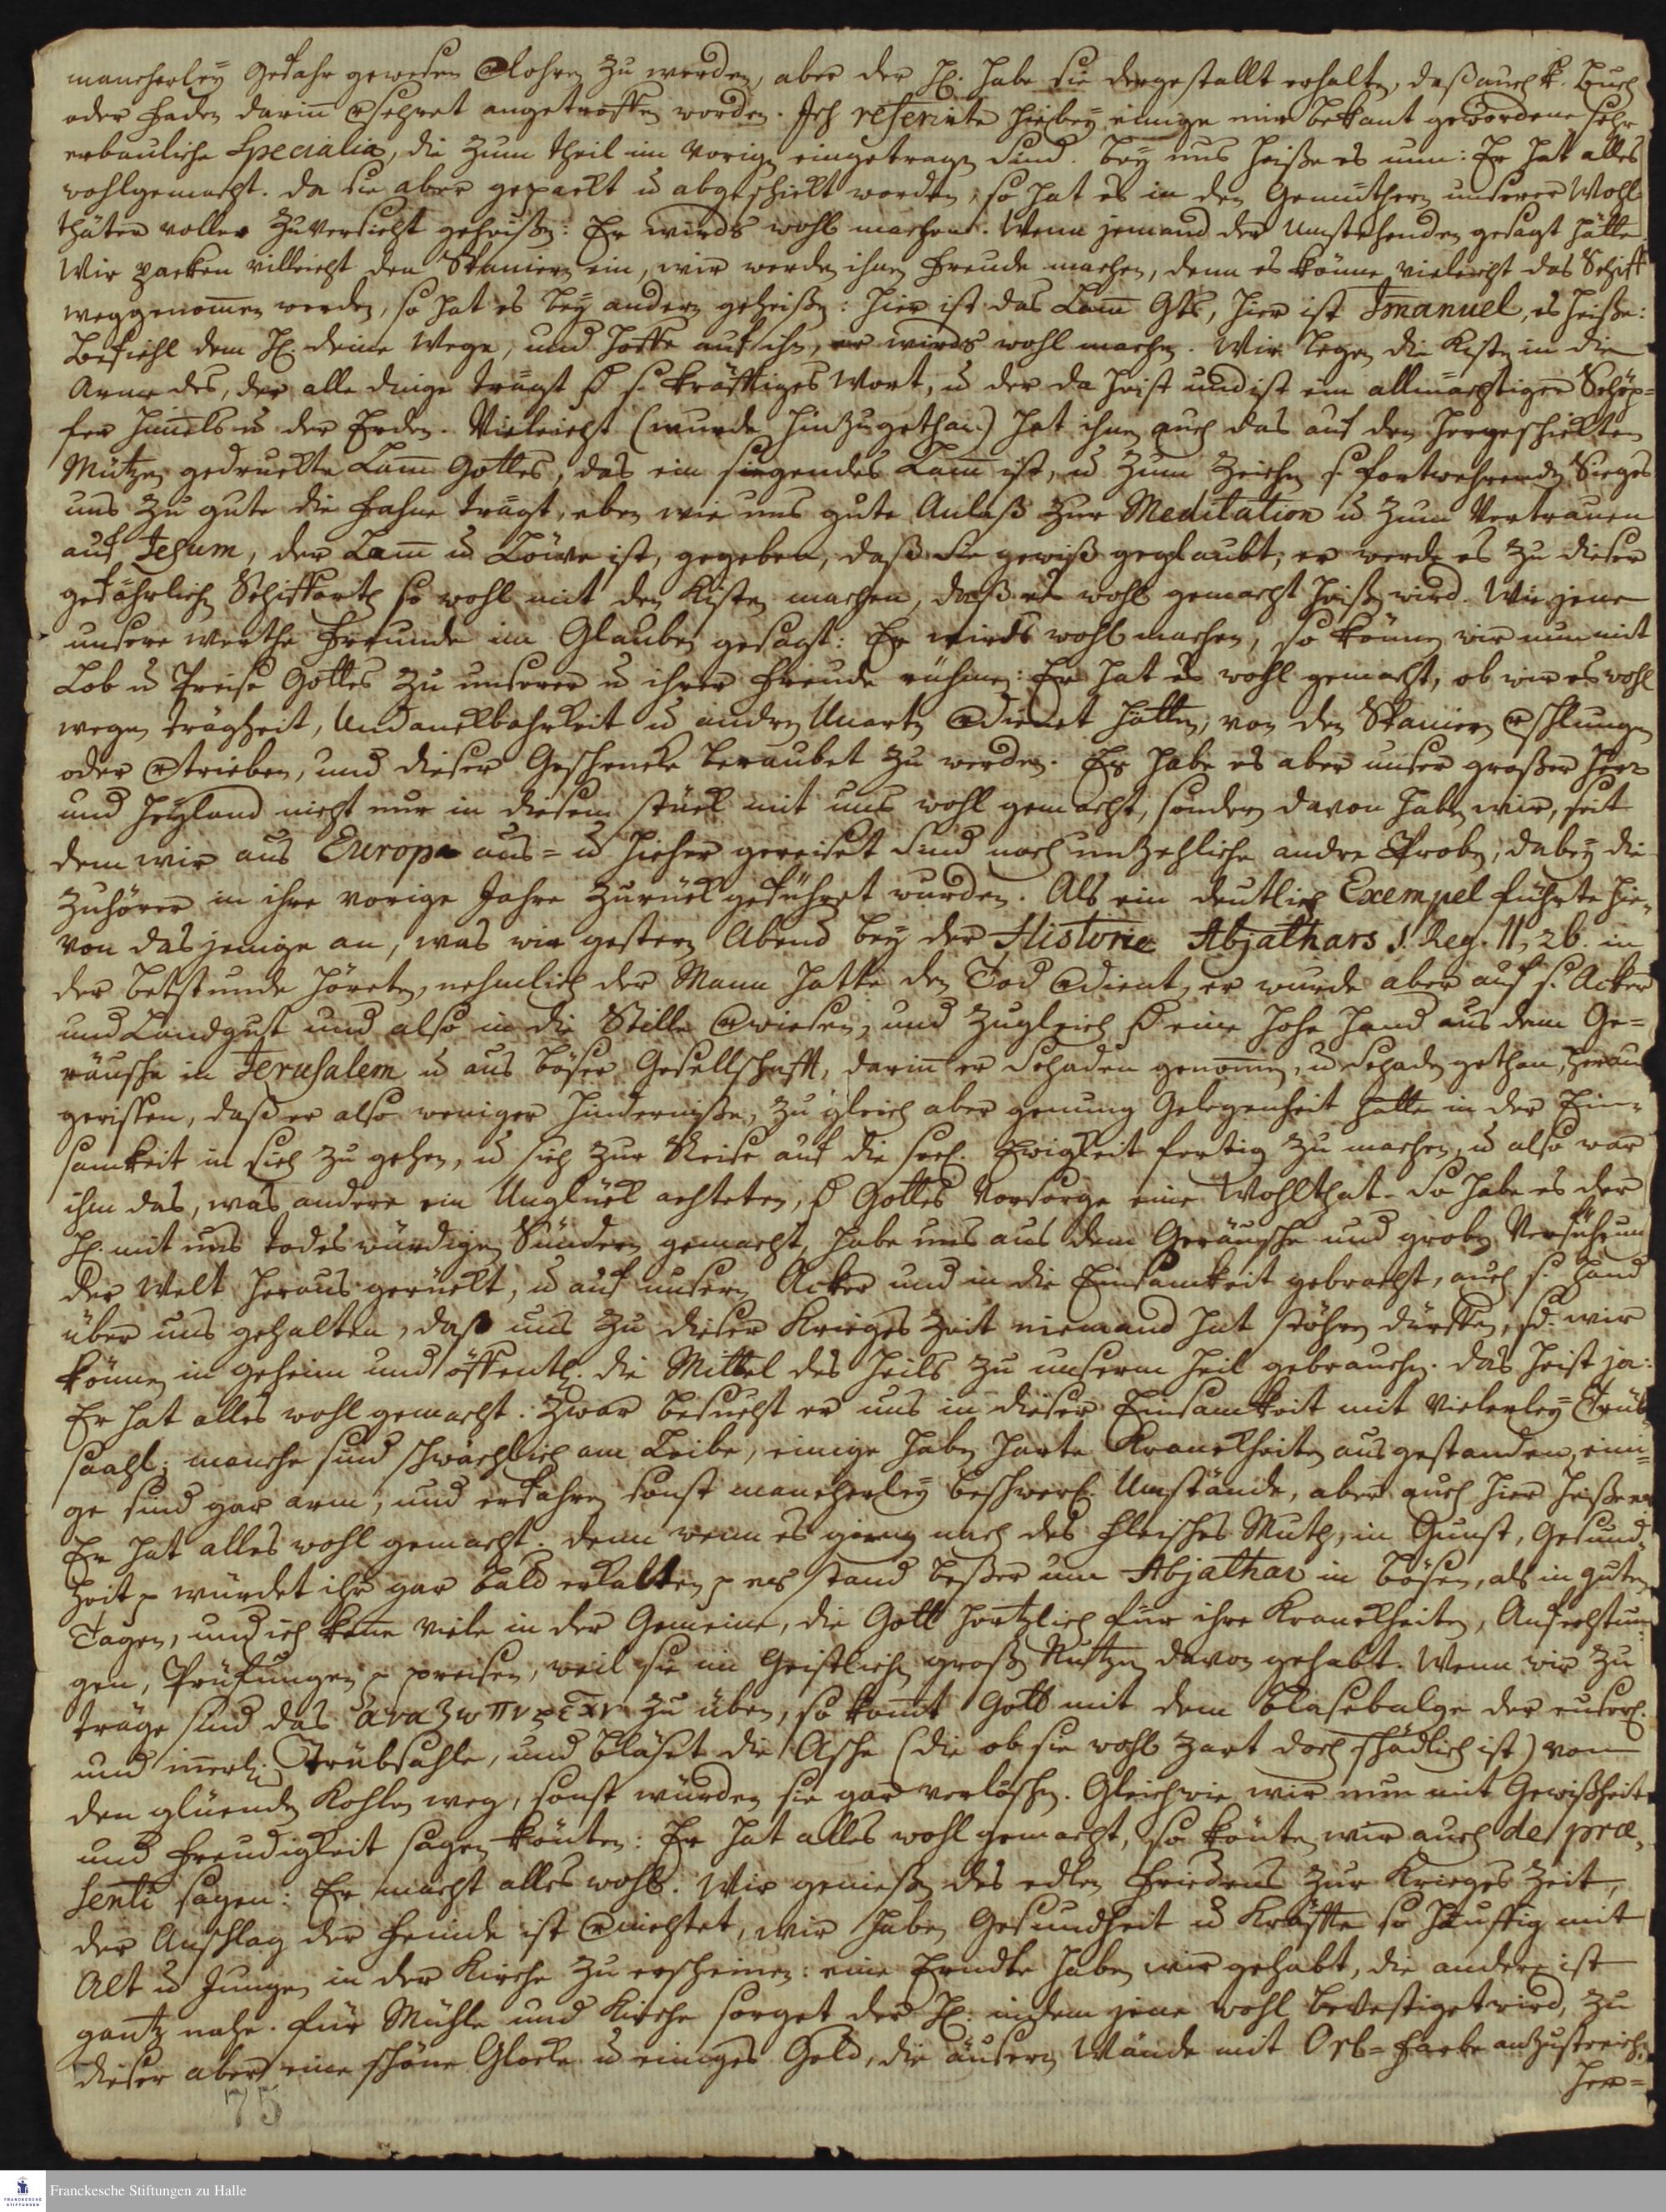 mancherley Gefahr gewesen verlohren zu werden, aber der H. habe sie dergestallt erhalten, daß auch k. Buch
oder Faden darin versehret angetroffen worden. Ich referirte hiebey einige mir bekant gewordene sehr
erbauliche Specialia, die zum theil im vorigen eingetragen sind. Bey uns heiße es nun: Er hat alles
wohlgemacht. Da sie aber gepackt u abgeschickt worden, so hat es in den Gemüthern unserer Wohl
thäter voller Zuversicht geheißen: Er wirds wohl machen. Wenn jemand der Umstehenden gesagt hätte
Wir packen villeicht den Spaniern ein, wir werden ihnen Freude machen, denn es könne vieleicht das Schiff
weggenom̅en werden, so hat es bey andern geheißen: hier ist das Lam̅ Gts, hier ist Imanuel, es heiße:
Befiehl dem H. deine Wege, und hoffe auf ihn, er wirds wohl machen. Wir legen die Kisten in die
Arme des, der alle dinge trägt d s. kräfftiges Wort, u der da heist und ist ein allmächtiger Schöp=
fer Him̅els u der Erden. Vieleicht (wurde hinzugethan) hat ihnen auch das auf den hergeschickten
Mützen gedruckte Lam̅ Gottes, das ein siegendes Lam̅ ist, u zum Zeichen s. fortwehrenden Sieges
uns zu gute die Fahne trägt, eben wie uns gute Anlaß zur Meditation u zum Vertrauen
auf Jesum, der Lam̅ u Löwe ist, gegeben, daß sie gewiß geglaubt, er werde es zu dieser
gefährlichen Schiffarth so wohl mit den Kisten machen, daß es wohl gemacht heißen wird. Wie jene
unsere werthe Freunde im Glauben gesagt: Er wirds wohl machen, so können wir nun mit
Lob u Preise Gottes zu unserer u ihrer Freude rühmen: Er hat es wohl gemacht, ob wir es wohl
wegen trägheit, Undanckbahrkeit u andren Unarten verdienet hätten, von den Spaniern verschlungen
oder vertrieben, und dieser Geschencke beraubet zu werden. Es habe es aber unser großer Herr
und Heyland nicht nur in diesem stück mit uns wohl gemacht, sondern davon haben wir, seit
dem wir aus Europa aus= u hieher gereiset sind noch unzehliche andre Proben, dabey die
Zuhörer in ihre vorige Jahre zurück geführet wurden. Als ein deutlich Exempel führte hie=
von dasjenige an, was wir gestern Abend bey der Historie Abjathars 1. Reg. 11, 26. in
der Betstunde höreten, nehmlich der Mann hatte den Tod verdient, er wurde aber auf s. Acker
und Landgut und also in die Stille verwiesen, und zugleich d eine hohe Hand aus dem Ge=
räusche in Jerusalem u aus böser Gesellschafft, darin er Schaden genom̅en, u Schaden gethan, heraus
gerissen, daß er also weniger Hinderniße, zugleich aber genung Gelegenheit hatte in der Ein=
samkeit in sich zu gehen, u sich zur Reise auf die seel. Ewigkeit fertig zu machen, u also war
ihm das, was andere ein Unglück achteten, d Gottes Vorsorge eine Wohlthat. So habe es der
H. mit uns todes würdigen Sündern gemacht, habe uns aus dem Geräusche und groben Verführun
der Welt heraus gerückt, u auf unsern Acker und in die Einsamkeit gebracht, auch s. Hand
über uns gehalten, daß uns zu dieser Krieges Zeit niemand hat stöhren dürffen, sd. wir
können in geheim und öffentl. die Mittel des Heils zu unserm Heil gebrauchen. Das heist ja:
Er hat alles wohl gemacht. Zwar besucht er uns in dieser Einsamkeit mit vielerley Trüb
saahl; manche sind schwächlich am Leibe, einige haben harte Kranckheiten ausgestanden, eini=
ge sind gar arm, und erfahren sonst mancherley beschwerl. Umstände, aber auch hier heiße es
Er hat alles wohl gemacht. Denn wenn es gieng nach des Fleisches Muth, in Gunst, Gesund=
heit p würdet ihr gar bald erkalten p es stand beßer um Abjathar in bösen, als in guten
Tagen, und ich kenne viele in der Gemeine, die Gott hertzlich für ihre Kranckheiten, Anfechtun=
gen, Prüfungen p preisen, weil sie im Geistlichen großen Nutzen davon gehabt. Wenn wir zu
träge sind das zu üben, so kom̅t Gott mit dem Blasebalge der euserl.
und in̅erl. Trübsahle, und bläset die Asche (die ob sie wohl zart doch schädlich ist) von
den glüenden Kohlen weg, sonst würden sie gar verlöschen. Gleichwie wir nun mit Gewißheit
und Freudigkeit sagen könten: Er hat alles wohl gemacht, so könten wir auch de præ=
senti sagen: Er macht alles wohl. Wir genießen des edlen Friedens zur Krieges Zeit,
der Anschlag der Feinde ist vernichtet, wir haben Gesundheit u Kräffte so häuffig mit
Alt u Jungen in der Kirche zu erscheinen: eine Erndte haben wir gehabt, die andere ist
gantz nahe. Für Mühle und Kirche sorget der H. indem jene wohl bevestiget wird, zu
dieser aber eine schöne Glocke u einiges Geld, die äusern Wände mit Oel=Farbe anzustreichen,
Her=
75
Franckesche Stiftungen zu Halle
FRANCKESCHE
STIFTUNGEN